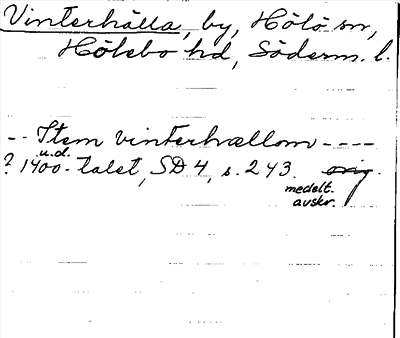 Vinterhälla, by, Hölö sn,
Hölebo hd, Söderm. l.
-- Item vinterhællom ----
u.d.
? 1400-talet, SD 4, s. 243. orig.
medelt.
avskr.